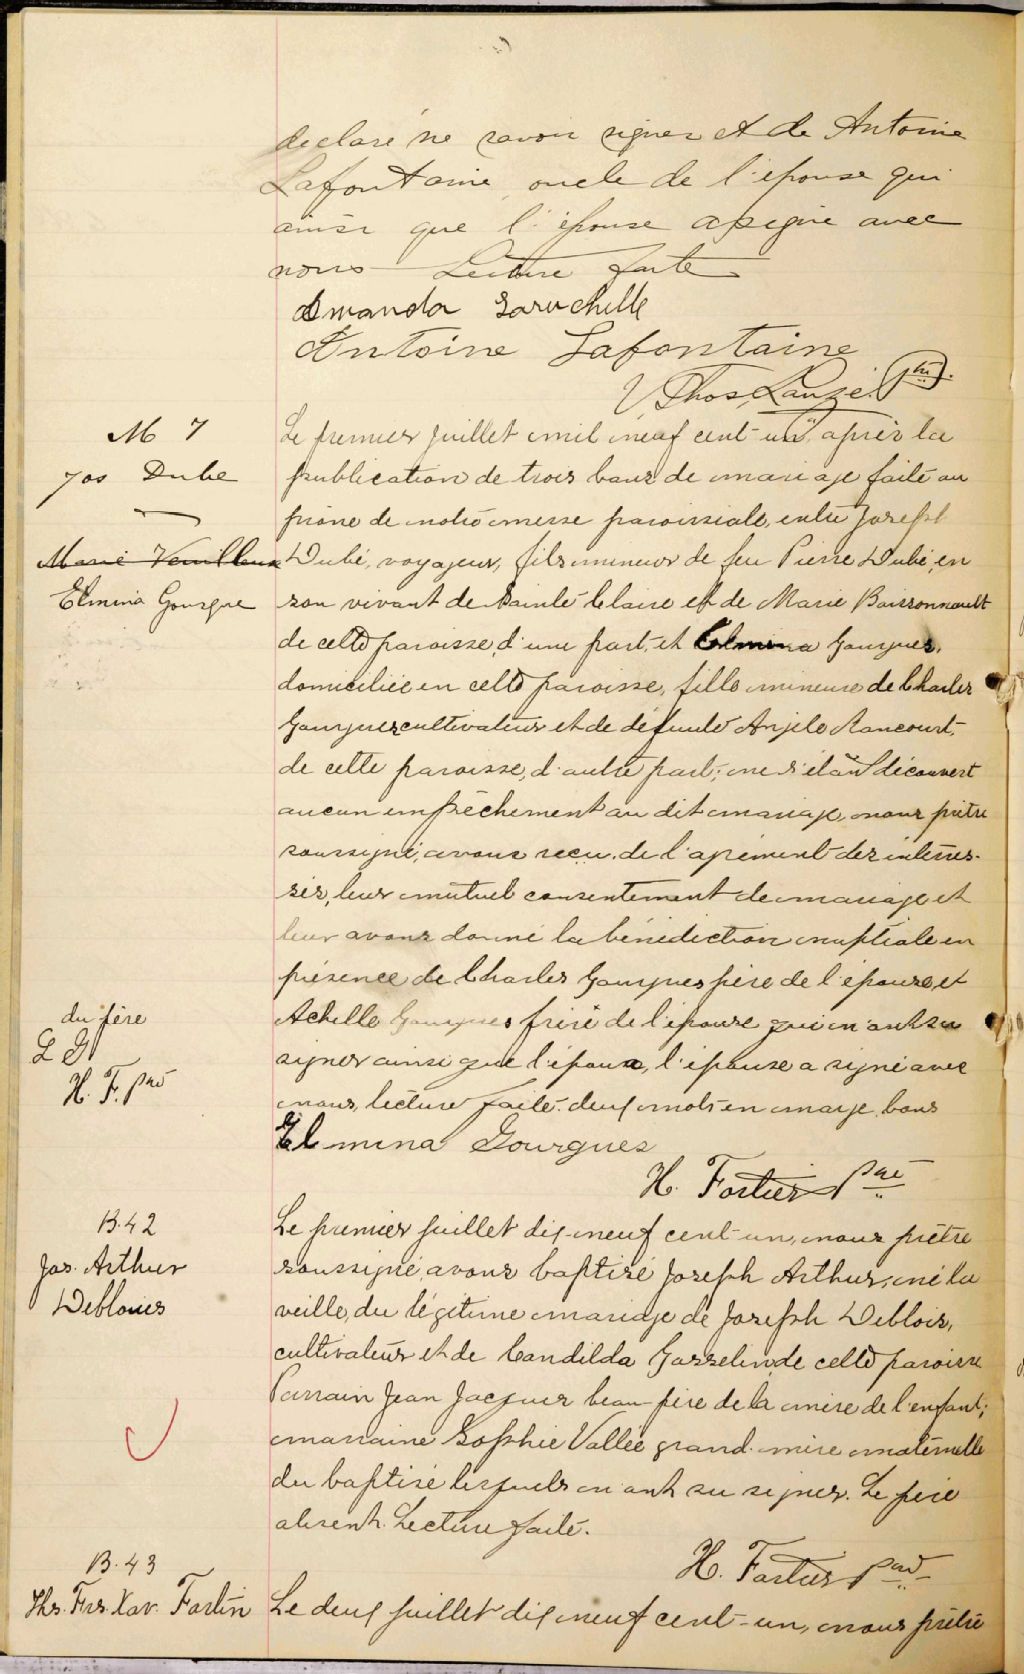 declaré ne savoir signer et de Antoine
Lafontaine oncle de l'épouse qui
ainsi que l'épouse a signé avec
nous Lecture faite
Amanda Laruchelle
Antoine Lafontaine
Thos Lauzé Ptre.
M 7
Jos Dube
Marie Veuilleux
Elmina Gourgue
Le premier juillet mil neuf cent un, après la
publication de trois bans de mariage faite au
prône de notre messe paroissiale, entre Joseph
Dubé, voyageur, fils mineur de feu Pierre Dubé, en
son vivant de Sainte Claire et de Marie Boissonnault
de cette paroisse, d'une part, et Elmina Gourgues,
domiciliée en cette paroisse, fille mineure de Charles
Gourgues cultivateur et de défunte Angèle Rancourt,
de cette paroisse, d'autre part; ne s'étant découvert
aucun empêchement au dit mariage, nous prêtre
soussigné, avons reçu, de l'agrément des intéres-
sés, leur mutuel consentement de mariage et
leur avons donné la bénédiction nuptiale en
présence de Charles Gourgues père de l'épouse, et
Achille Gourgues frère de l'épouse qui n'ont su
signer ainsi que l'époux, l'épouse a signé avec
nous, lecture faite. deux mots en marge bons
du père
E G
H. F. Ptre
Elmina Gourgues
H. Fortier Ptre
B. 42
Jos. Arthur
Deblouis
Le premier juillet dix-neuf cent-un, nous prêtre
soussigné, avons baptisé Joseph Arthur, né la
veille, du légitime mariage de Joseph Deblois,
cultivateur et de Candilda Gosselin, de cette paroisse
Parrain Jean Jacques beau-père de la mère de l'enfant;
marraine Sophie Vallée grand-mère maternelle
du baptisé lesquels n'ont su signer. Le père
absent. Lecture faite.
H. Fortier Ptre
B. 43
Ths. Frs. Xav. Fortin
Le deux juillet dix neuf cent-un, nous prêtre